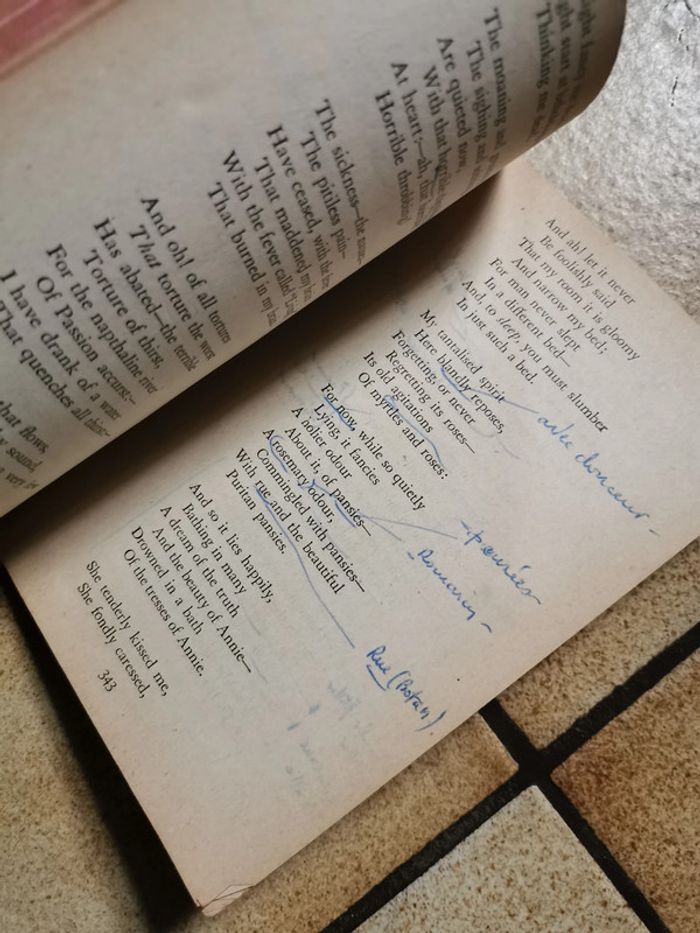 Thinking me
The moaning and
The sighing and
Are quieted now,
With that
At heart:—ah, that
Horrible throbbing!
The sickness—the
The pitiless pain—
Have ceased, with the
That maddened my
With the fever called
That burned in my
And oh! of all tortures
That torture the worst
Has abated—the terrible
Torture of thirst,
For the napthaline river
Of Passion accurst:—
I have drank of a water
That quenches all thirst:—
that flows,
sound,
a very
And ah! let it never
Be foolishly said
That my room it is gloomy
And narrow my bed;
For man never slept
In a different bed—
And, to sleep, you must slumber
In just such a bed.
My tantalised spirit
Here blandly reposes,
Forgetting, or never
Regretting its roses—
Its old agitations
Of myrtles and roses:
For now, while so quietly
Lying, it fancies
A holier odour
About it, of pansies—
A rosemary odour,
Commingled with pansies—
With rue and the beautiful
Puritan pansies.
And so it lies happily,
Bathing in many
A dream of the truth
And the beauty of Annie—
Drowned in a bath
Of the tresses of Annie.
She tenderly kissed me,
She fondly caressed,
343
avec douceur -
- pensées
- Romarin -
Rue (Botan).